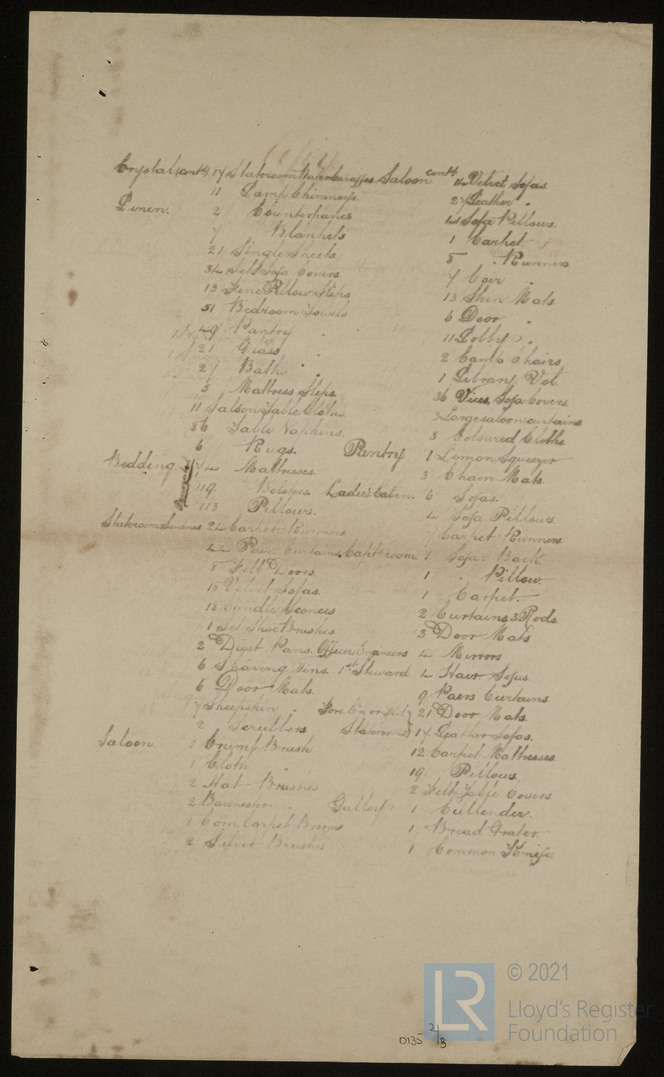 Crystal (contd) 17 Stateroom Water Caraffes
11 Lamp Chimneys
Linen. 2 Counterpanes
7 Blankets
21 Single Sheets
34 Sofa Covers
13 Fine Pillow Slips
51 Bedroom Towels
49 Pantry "
21 Glass "
27 Bath "
3 Mattress Slips
11 Saloon Table Cloths
86 Table Napkins
6 Rugs.
Bedding 74 Mattresses.
119. Bolsters
113 Pillows.
Stateroom 24 Carpet Runners
44 Pair Curtains
8 Felt Doors
15 Velvet Sofas.
18 Candle Sconces
1 Set Shoe Brushes.
2 Dust Pans.
6 Shaving Tins.
6 Door Mats.
7 Sheepskin "
2 Scrubbers
Saloon 1 Crumb Brush
1 Cloth "
2 Hat Brushes
2 Bannister "
1 Com Carpet Broom
2 Silver Brushes
Saloon contd 14 Velvet Sofas
27 Leather "
14 Sofa Pillows.
1 Carpet
8 " Runners
7 Coir "
13 Skin Mats
6 Door "
11 Lobby "
2 Camp Chairs
1 Library Vol.
36 Sofa Covers
3 Large saloon curtains
3 Coloured Cloths
Pantry 1 Lemon Squeezer
3 Chain Mats.
Ladies Cabin. 6 Sofas.
4 Sofa Pillows
Carpet Runners
Capts room. 1 Sofa Back.
1 " Pillow
1 Carpet.
2 Curtains & Rods.
3 Door Mats
Officers Engineers 4 Mirrors
1st Steward 4 Hair Sofas
9 Pairs Curtains
21 Door Mats.
Staterooms 17 Leather Sofas.
12 Carpet Mattresses
19 Pillows
2 Felt Table Covers
Gallery 1 Cullender.
1 Bread Grater.
1 Common Knife
0135 2/3
LR
© 2021
Lloyd's Register
Foundation